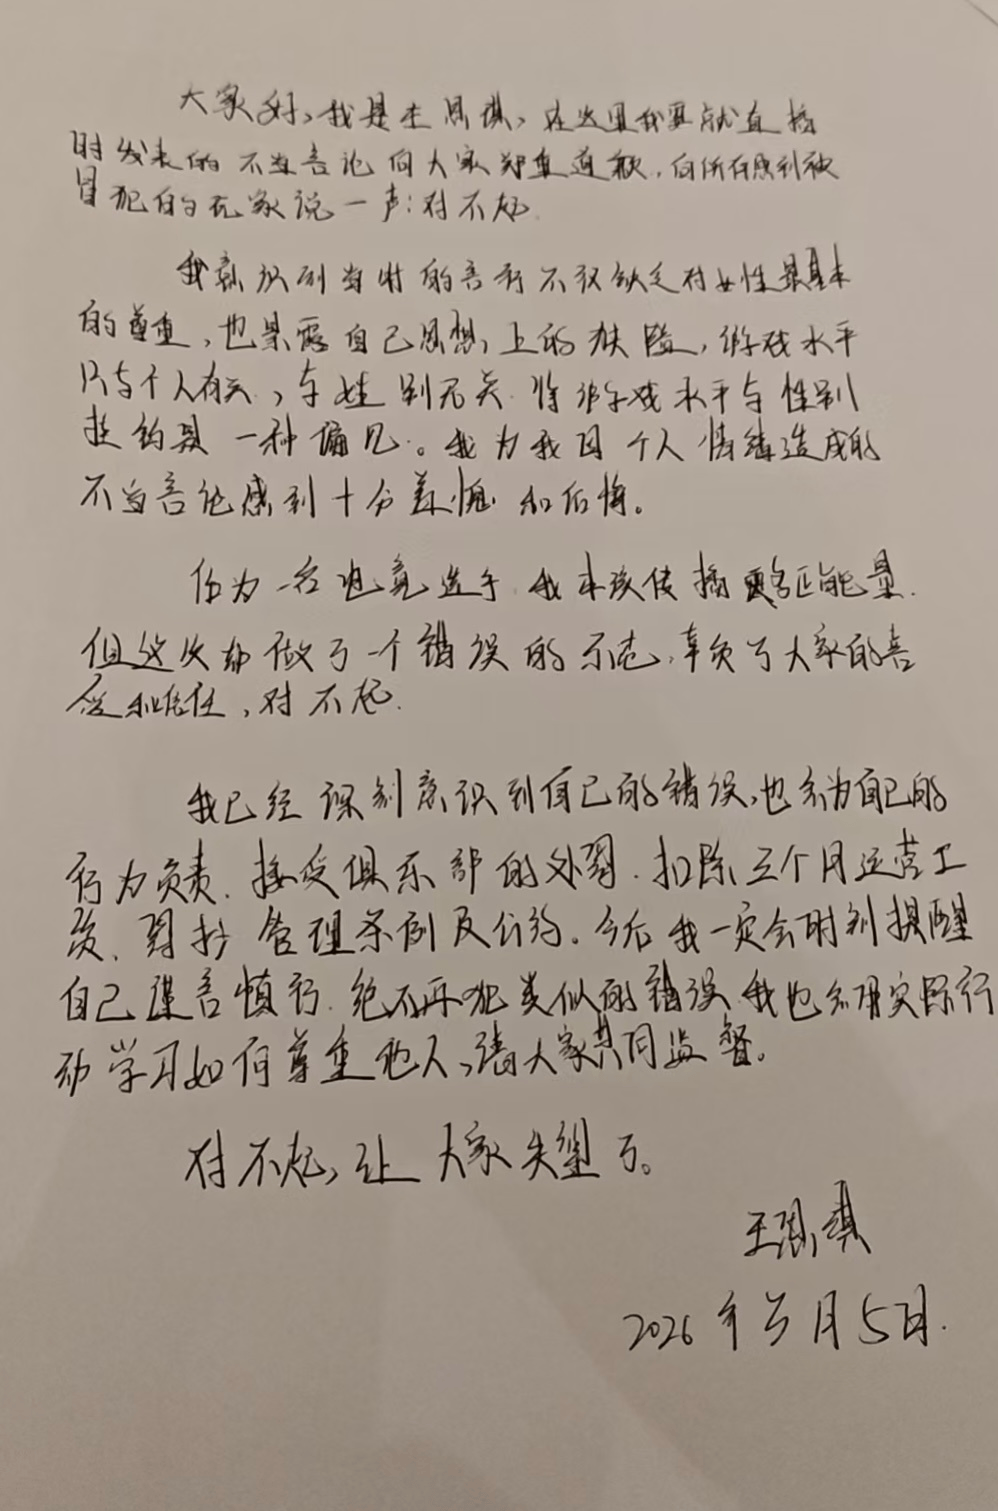 大家好，我是王思琪，在这里我要就直播
时发表的不当言论向大家郑重道歉，向所有感到被
冒犯的玩家说一声：对不起.
我意识到当时的言行不仅缺乏对女性最基本
的尊重，也暴露自己思想上的狭隘，游戏水平
只与个人有关，与性别无关.将游戏水平与性别
挂钩是一种偏见。我为我因个人情绪造成的
不当言论感到十分羞愧和后悔。
作为一名电竞选手.我本该传播正能量.
但这次却做了一个错误的示范，辜负了大家的喜
爱和信任，对不起.
我已经深刻意识到自己的错误，也会为自己的
行为负责.接受俱乐部的处罚.扣除三个月运营工
资.罚抄管理条例及公约。今后我一定会时刻提醒
自己谨言慎行.绝不再犯类似的错误.我也会用实际行
动学习如何尊重他人，请大家共同监督。
对不起，让大家失望了。
王思琪
2026年3月5日.